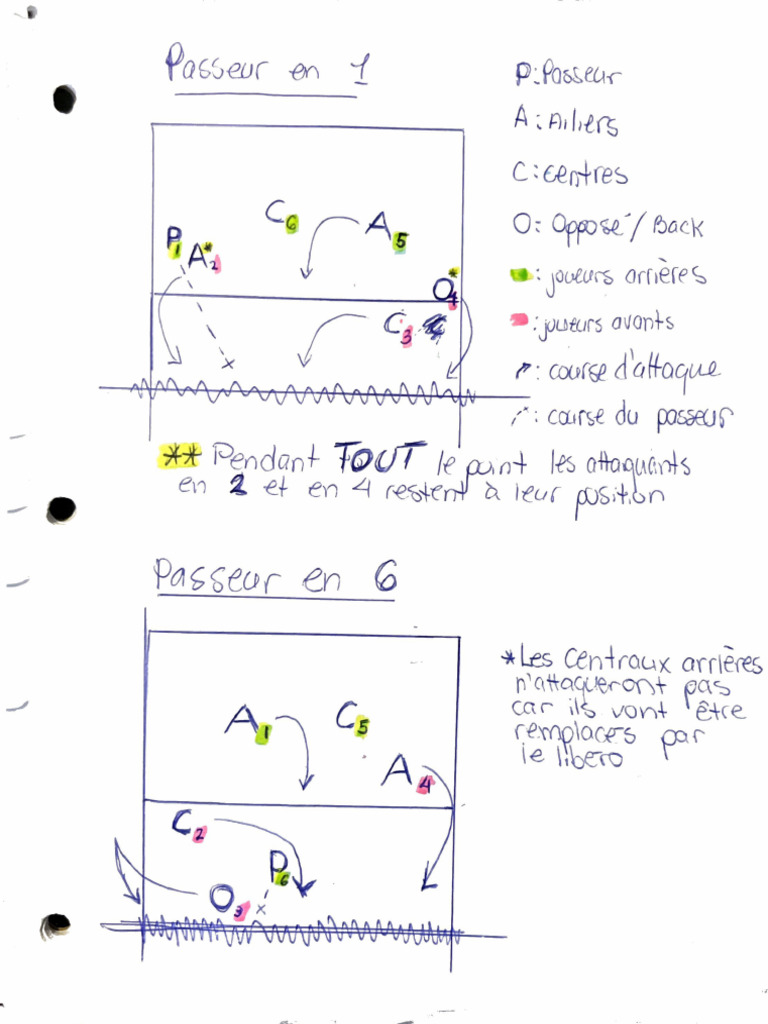 Passeur en 1
P: Passeur
A: Ailiers
C: centres
O: Opposé / Back
: joueurs arrières
: joueurs avants
: course d'attaque
: course du passeur
C6
A5
P1
A2*
O4*
C3
** Pendant TOUT le point les attaquants
en 2 et en 4 restent à leur position
Passeur en 6
*Les centraux arrières
n'attaqueront pas
car ils vont être
remplacés par
le libero
A1
C5
A4
C2
P6
O3